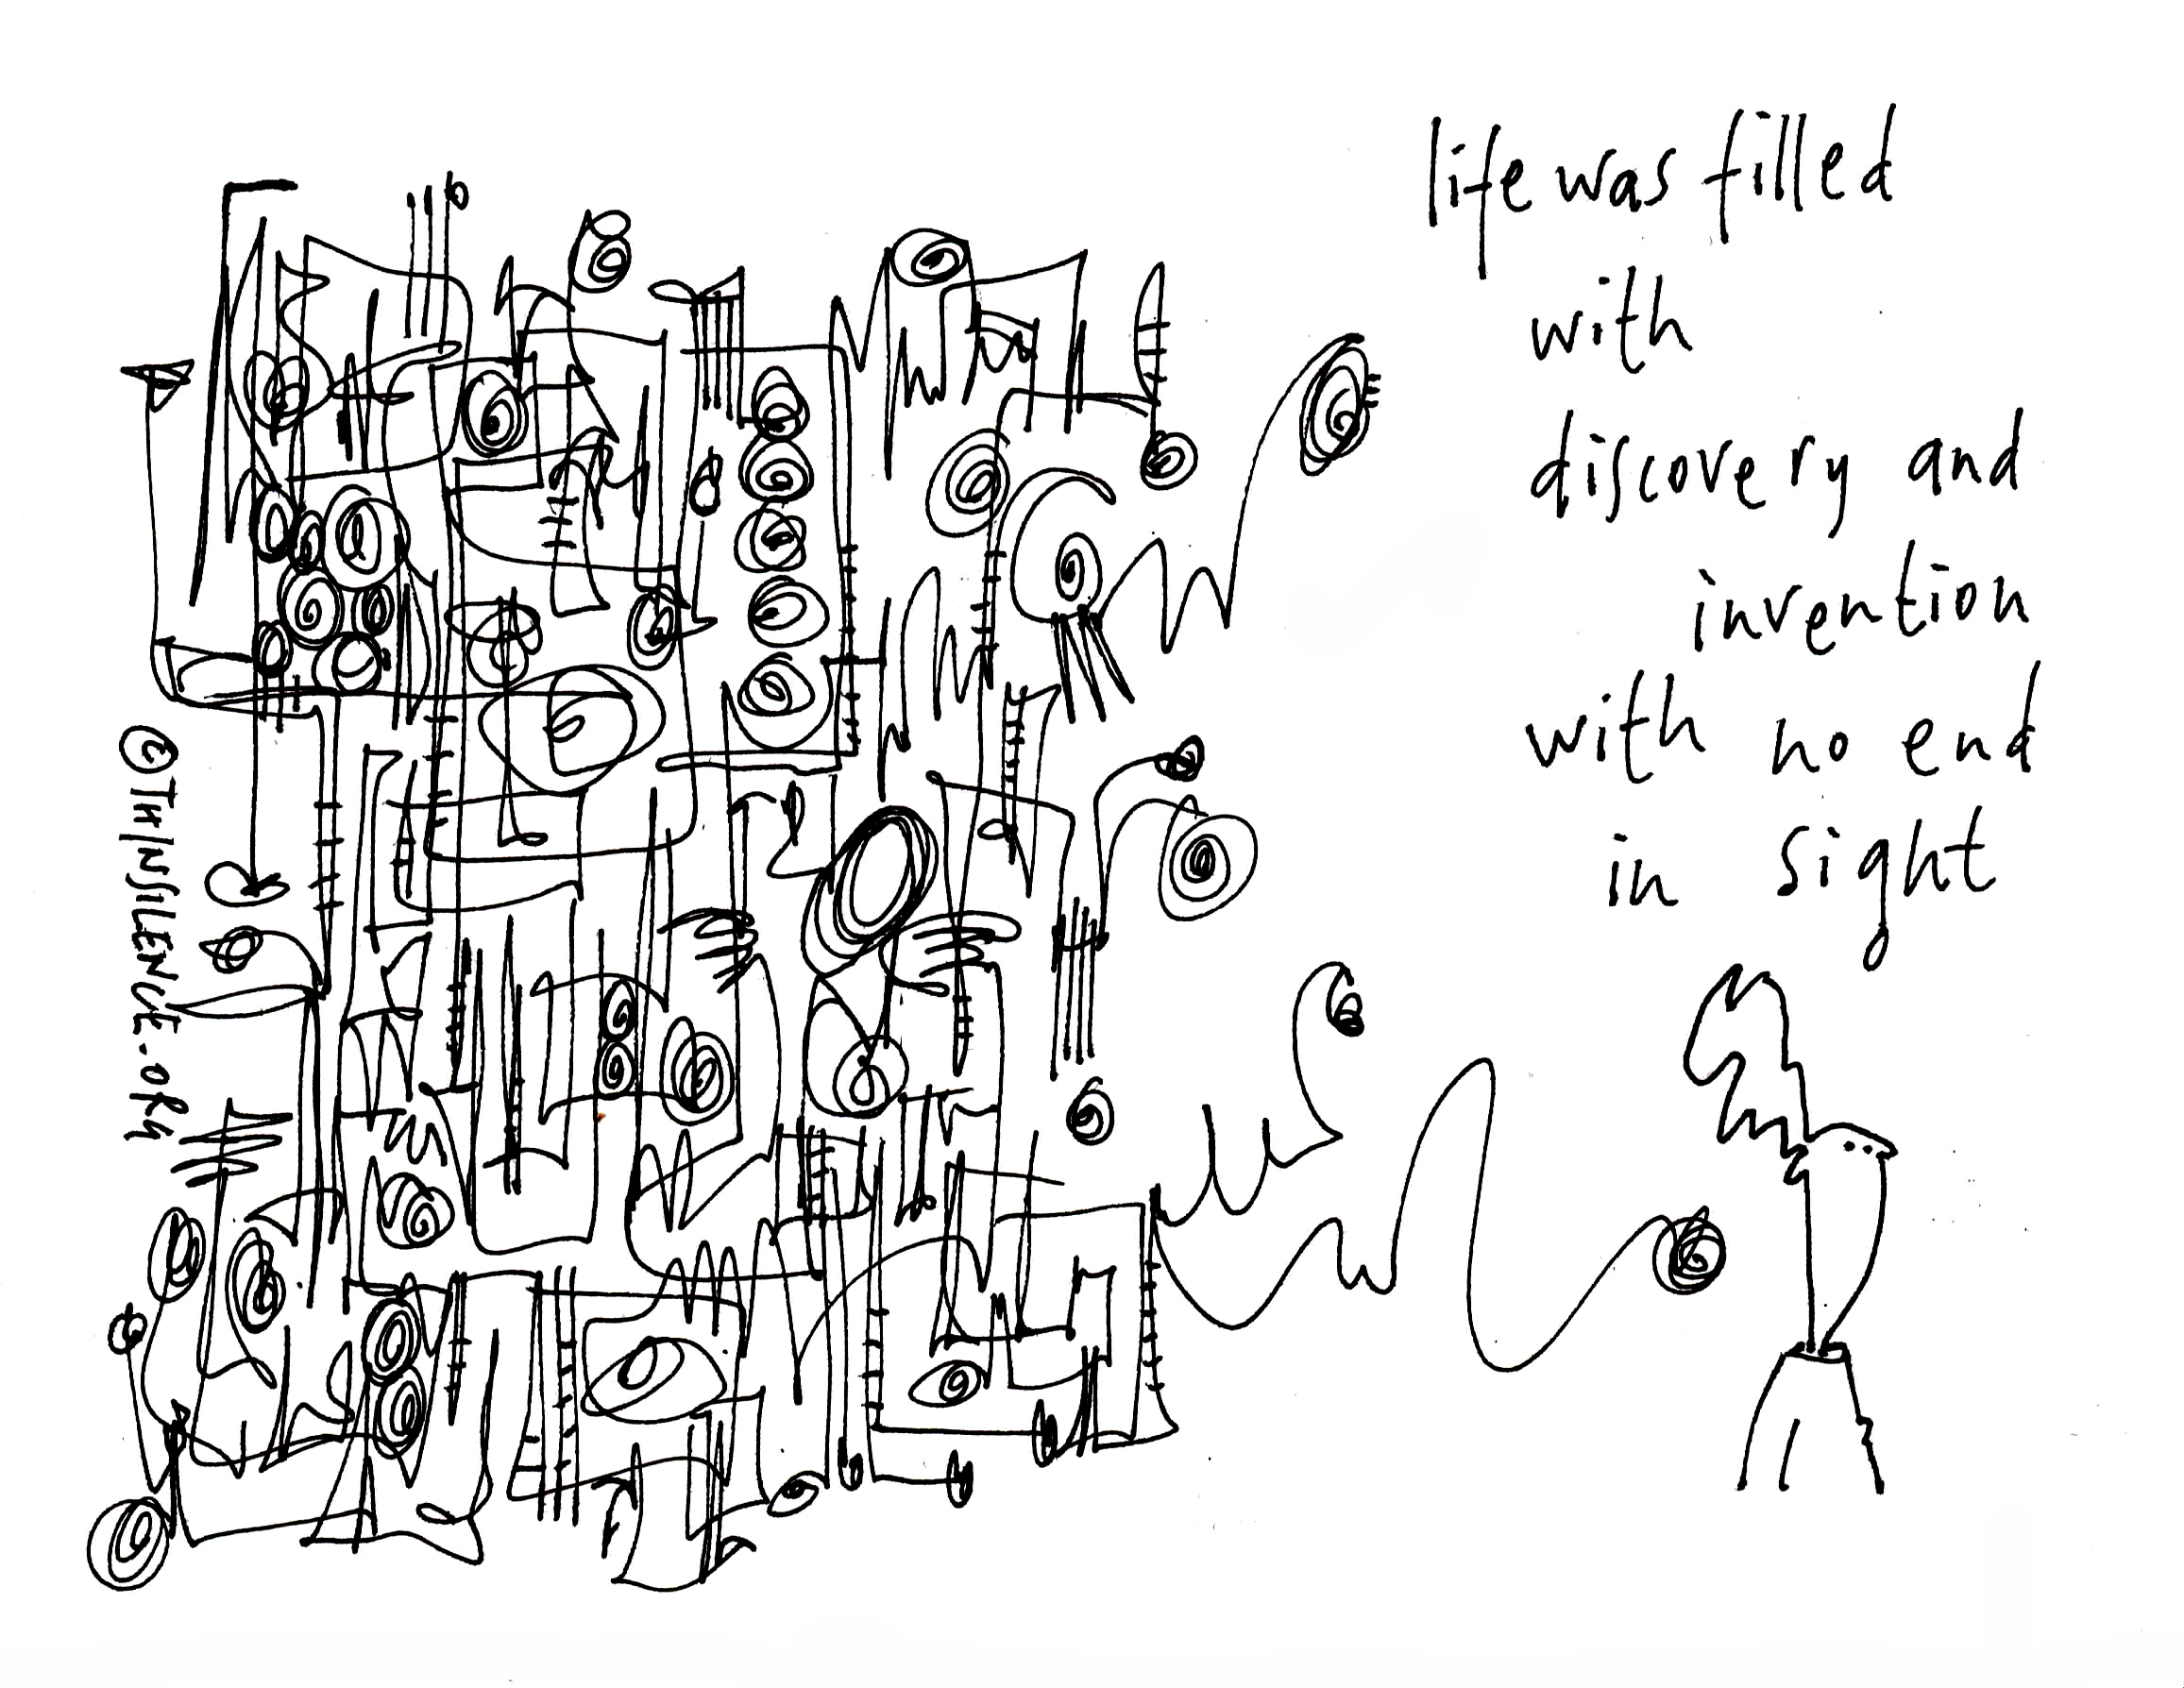 life was filled
with
discovery and
invention
with no end
in sight